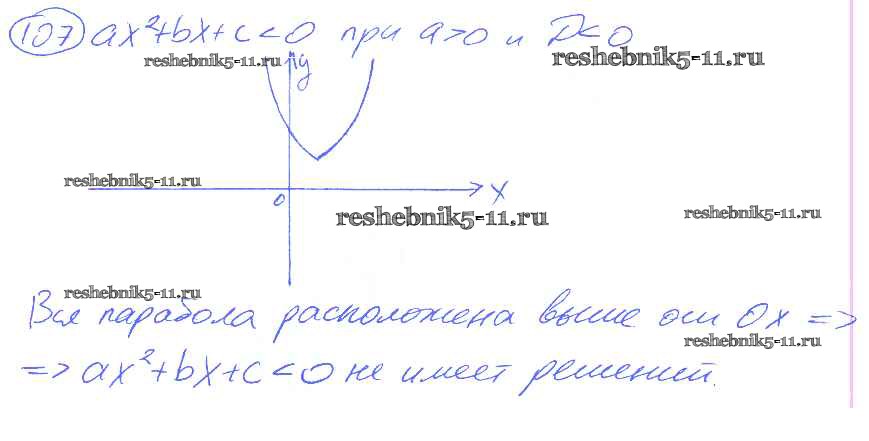 107 ax²+bx+c<0 при a>0 и D<0
reshebnik5-11.ru
reshebnik5-11.ru
y
reshebnik5-11.ru
x
0
reshebnik5-11.ru
reshebnik5-11.ru
reshebnik5-11.ru
Вся парабола расположена выше оси Ox =>
reshebnik5-11.ru
=> ax²+bx+c<0 не имеет решений.